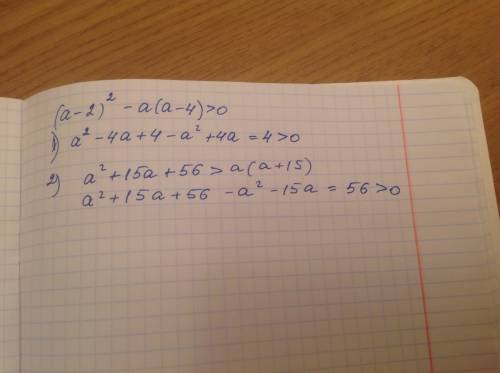 (a-2)² - a(a-4)>0
1) a² - 4a + 4 - a² + 4a = 4 > 0
2) a² + 15a + 56 > a(a+15)
a² + 15a + 56 - a² - 15a = 56 > 0